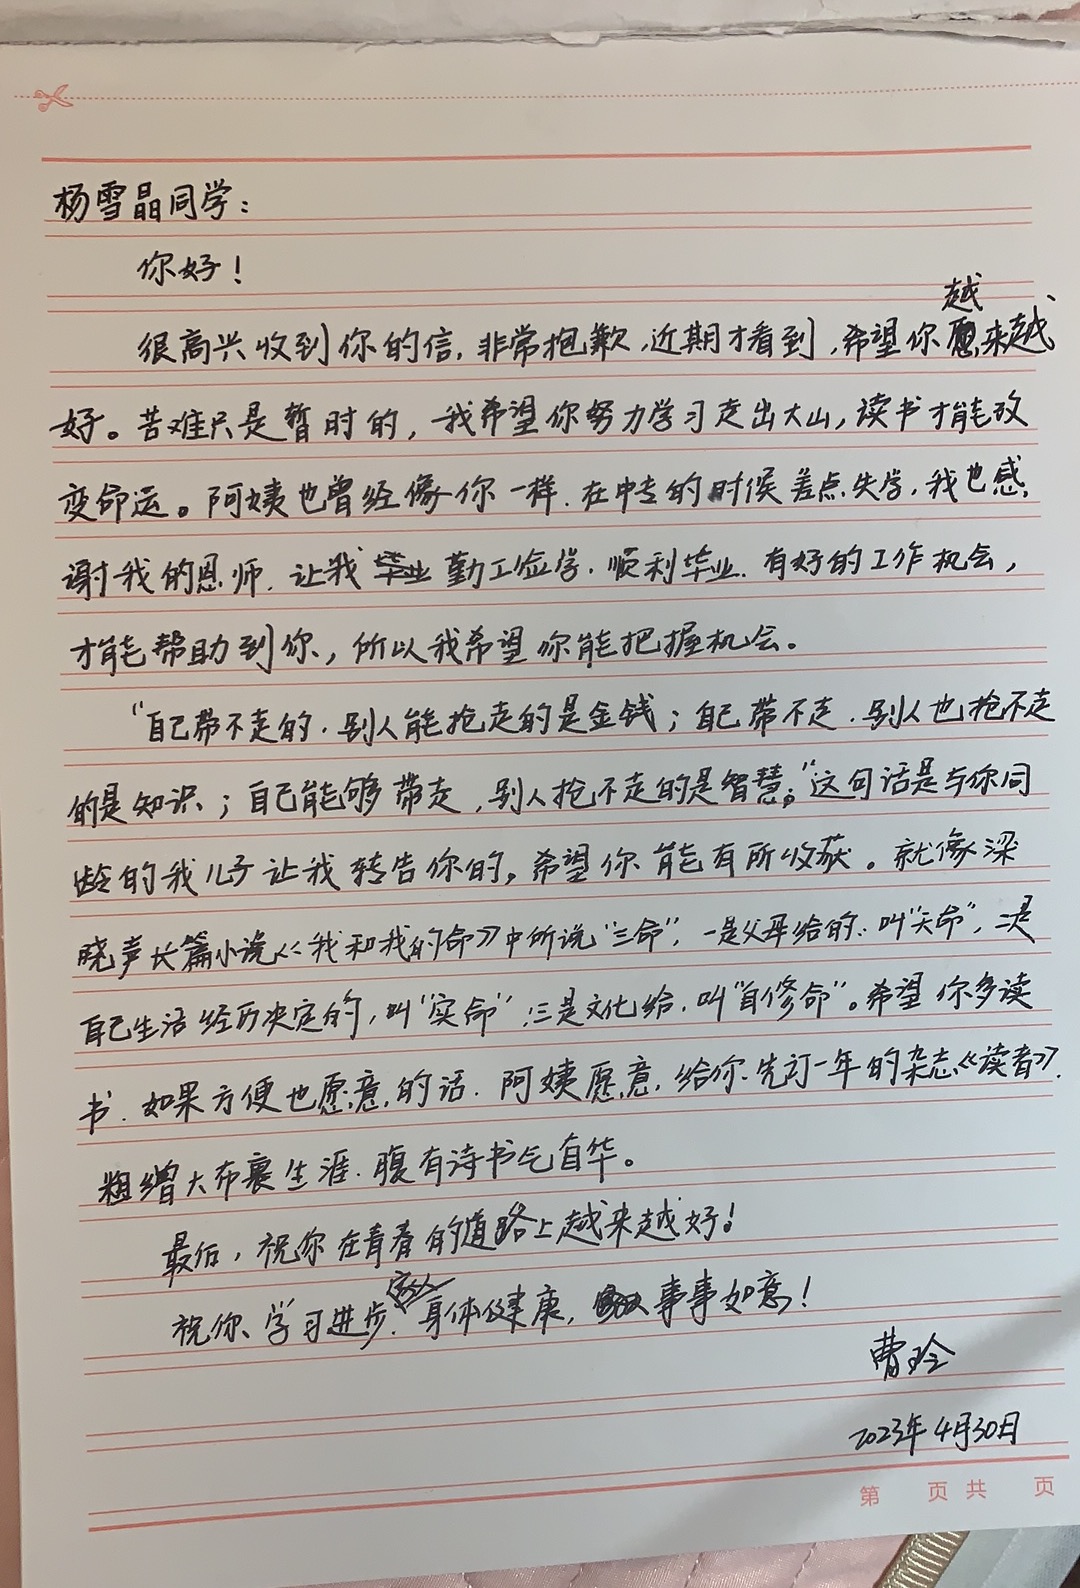 杨雪晶同学：
你好！
很高兴收到你的信，非常抱歉，近期才看到，希望你越来越
好。苦难只是暂时的，我希望你努力学习走出大山，读书才能改
变命运。阿姨也曾经像你一样，在中专的时候差点失学，我也感
谢我的恩师，让我勤工俭学，顺利毕业，有好的工作机会，
才能帮助到你，所以我希望你能把握机会。
“自己带不走的，别人能抢走的是金钱；自己带不走，别人也抢不走
的是知识；自己能够带走，别人抢不走的是智慧。”这句话是与你同
龄的我儿子让我转告你的，希望你能有所收获。就像梁
晓声长篇小说《我和我的命》中所说“三命”，一是父母给的，叫“天命”，二是
自己生活经历决定的，叫“实命”，三是文化给，叫“自修命”。希望你多读
书，如果方便也愿意的话，阿姨愿意给你先订一年的杂志《读者》.
粗缯大布裹生涯，腹有诗书气自华。
最后，祝你在青春的道路上越来越好！
祝你学习进步，身体健康，事事如意！
曹玲
2023年4月30日
第 页 共 页